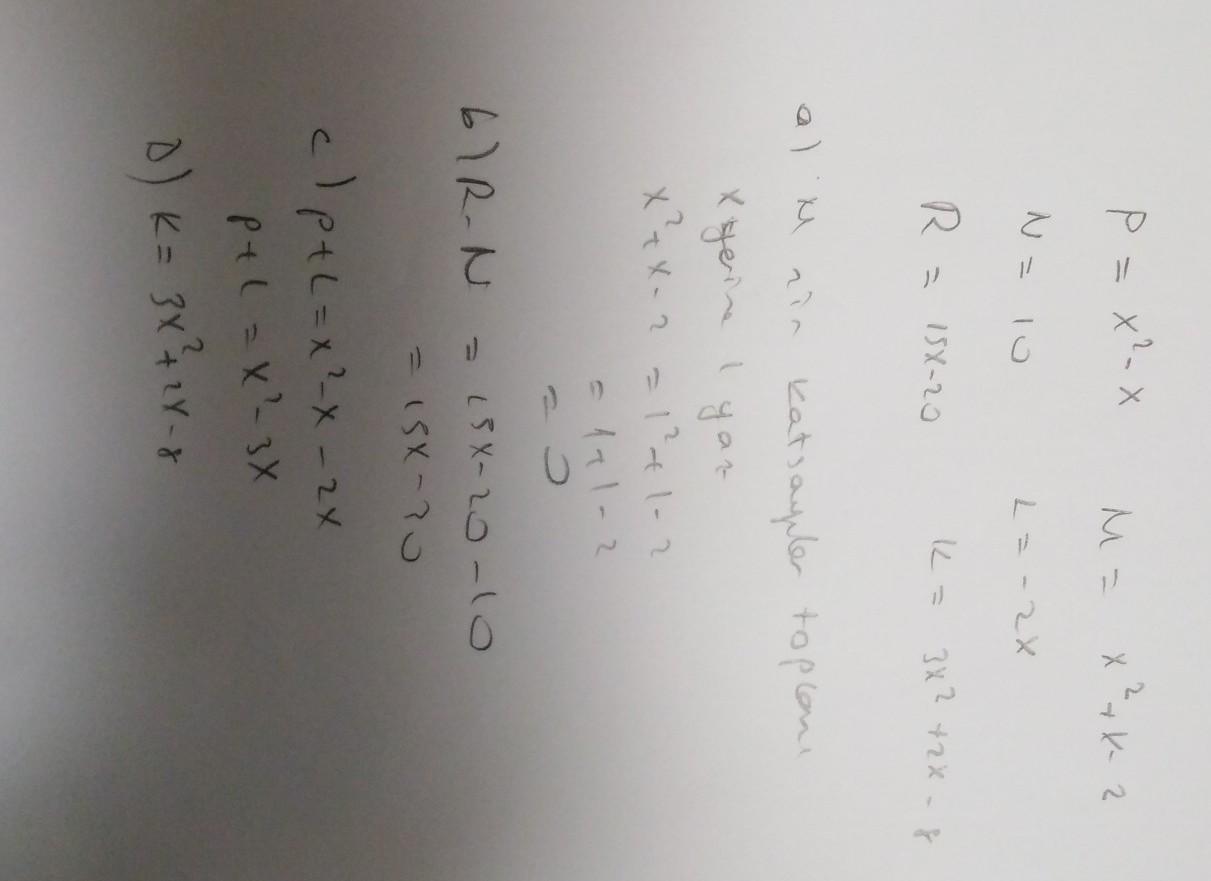 P = x² - x M = x² + x - 2
N = 10 L = -2x
R = 15x-20 K = 3x² + 2x - 8
a) M nin katsayılar toplamı
x yerine 1 yaz
x² + x - 2 = 1² + 1 - 2
= 1 + 1 - 2
= 0
b) R - N = 15x - 20 - 10
= 15x - 30
c) P + L = x² - x - 2x
P + L = x² - 3x
D) K = 3x² + 2x - 8